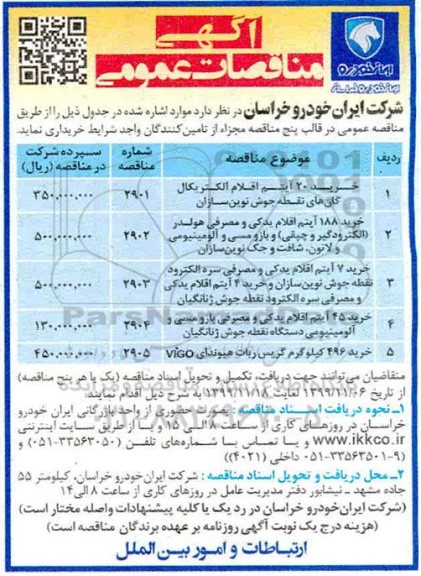 آگهی
مناقصات عمومی
ایران خودرو
ایران خودرو خراسان
شرکت ایران خودرو خراسان در نظر دارد موارد اشاره شده در جدول ذیل را از طریق
مناقصه عمومی در قالب پنج مناقصه مجزاء از تامین کنندگان واجد شرایط خریداری نماید.
ردیف موضوع مناقصه شماره مناقصه سپرده شرکت در مناقصه (ریال)
۱ خرید ۲۰ آیتم اقلام الکتریکال
گان های نقطه جوش نوین سازان ۲۹۰۱ ۳۵۰,۰۰۰,۰۰۰
۲ خرید ۱۸۸ آیتم اقلام یدکی و مصرفی هولدر
(الکترودگیر و چپقی) و بازو مسی و آلومینیومی
و لاتون، شافت و جک نوین سازان ۲۹۰۲ ۵۰۰,۰۰۰,۰۰۰
۳ خرید ۷ آیتم اقلام یدکی و مصرفی سره الکترود
نقطه جوش نوین سازان و خرید ۴ آیتم اقلام یدکی
و مصرفی سره الکترود نقطه جوش ژانگیان ۲۹۰۳ ۵۰۰,۰۰۰,۰۰۰
۴ خرید ۴۵ آیتم اقلام یدکی و مصرفی بازو مسی و
آلومینیومی دستگاه نقطه جوش ژانگیان ۲۹۰۴ ۱۳۰,۰۰۰,۰۰۰
۵ خرید ۴۹۶ کیلوگرم گریس ربات هیوندای VIGO ۲۹۰۵ ۴۵۰,۰۰۰,۰۰۰
متقاضیان می توانند جهت دریافت، تکمیل و تحویل اسناد مناقصه (یک یا هر پنج مناقصه)
از تاریخ ۱۳۹۹/۱۱/۰۶ لغایت ۱۳۹۹/۱۱/۱۸ به شرح ذیل اقدام نمایند:
۱ـ نحوه دریافت اسناد مناقصه : بطور حضوری از واحد بازرگانی ایران خودرو
خراسان در روزهای کاری از ساعت ۸ الی ۱۵ و یا از طریق سایت اینترنتی
www.ikkco.ir و یا تماس با شماره های تلفن (۳۳۵۶۳۰۵۰-۰۵۱ و
۹-۳۳۵۶۳۵۰۱-۰۵۱ داخلی (۴۰۲۱))
۲ـ محل دریافت و تحویل اسناد مناقصه : شرکت ایران خودرو خراسان، کیلومتر ۵۵
جاده مشهد ـ نیشابور دفتر مدیریت عامل در روزهای کاری از ساعت ۸ الی ۱۴
(شرکت ایران خودرو خراسان در رد یک یا کلیه پیشنهادات واصله مختار است)
(هزینه درج یک نوبت آگهی روزنامه بر عهده برندگان مناقصه است)
ارتباطات و امور بین الملل